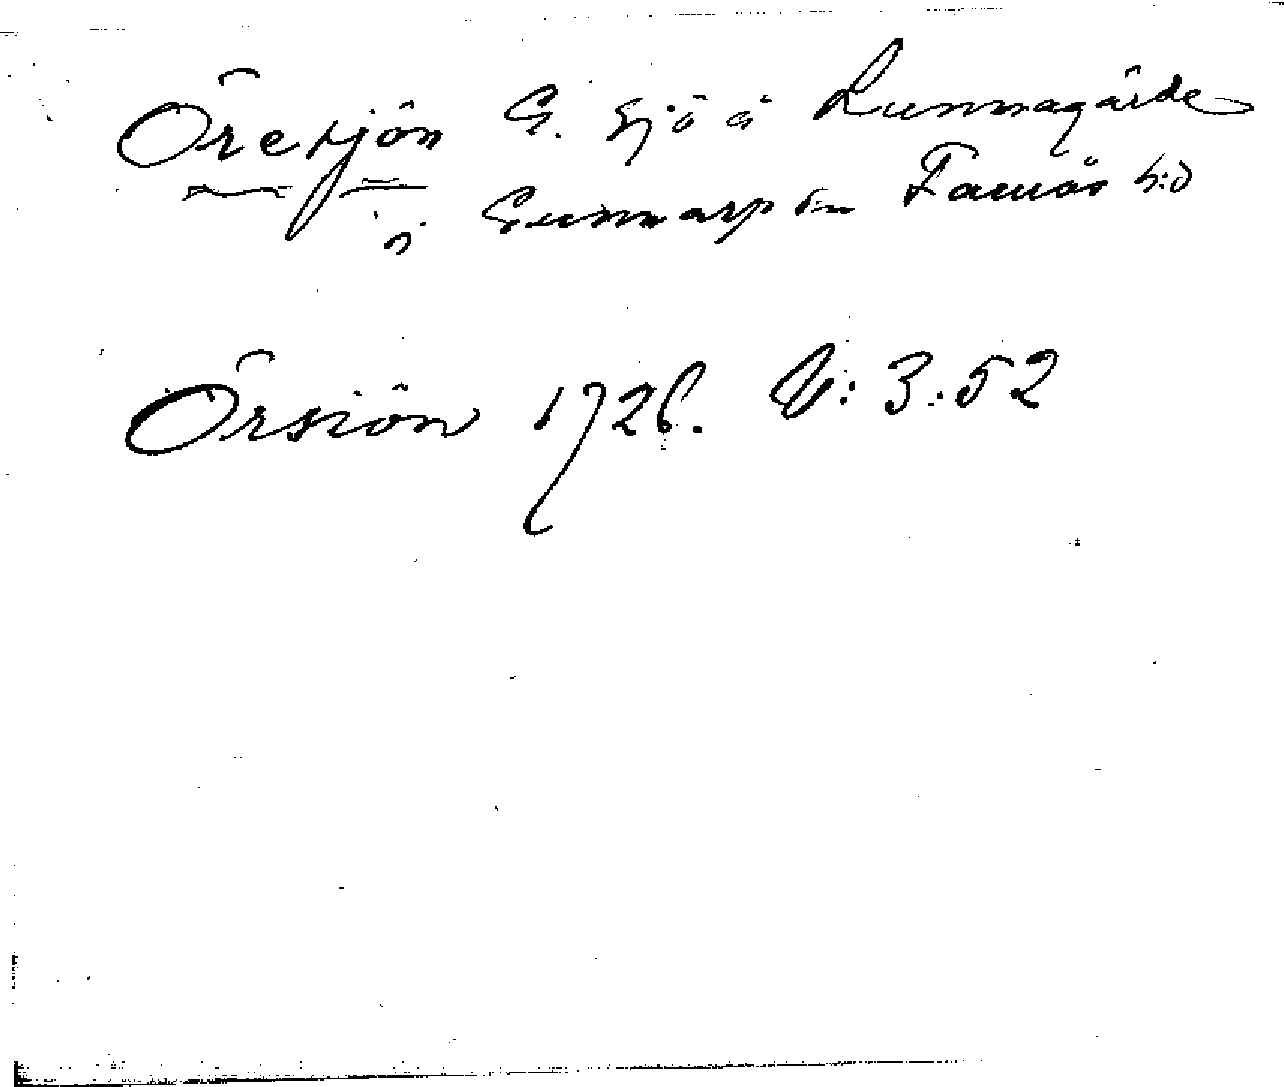 Öresjön G. sjö å Lunnagårde
i Gunnarp sn Fauås h:d
Örsiön 1726. : 3:52